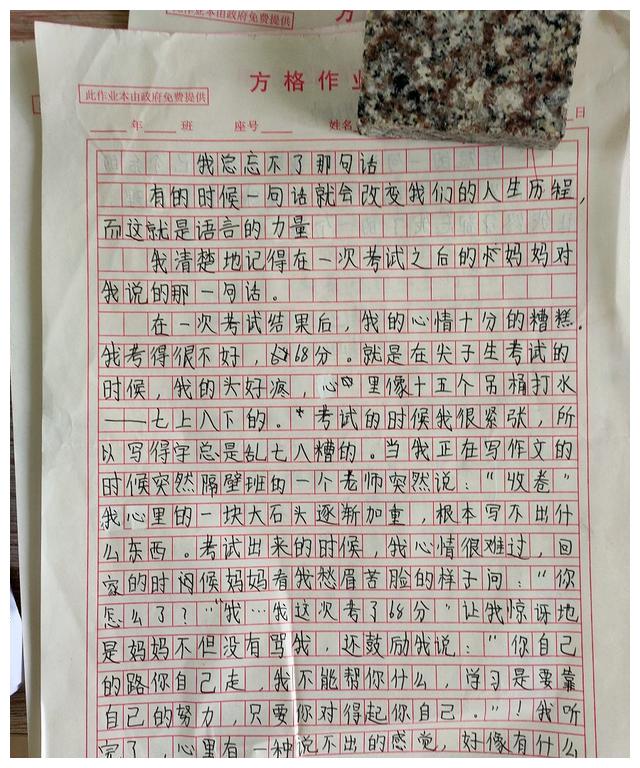 此作业本由政府免费提供
方
方格作业
此作业本由政府免费提供
年 班 座号 姓名 日
我总忘不了那句话
有的时候一句话就会改变我们的人生历程，
而这就是语言的力量
我清楚地记得在一次考试之后的妈妈对
我说的那一句话。
在一次考试结果后，我的心情十分的糟糕。
我考得很不好，68分。就是在尖子生考试的
时候，我的头好疼，心里像十五个吊桶打水
——七上八下的。考试的时候我很紧张，所
以写得字总是乱七八糟的。当我正在写作文的
时候突然隔壁班的一个老师突然说：“收卷”
我心里的一块大石头逐渐加重，根本写不出什
么东西。考试出来的时候，我心情很难过，回
家的时候妈妈看我愁眉苦脸的样子问：“你
怎么了？”“我…我这次考了68分”让我惊讶地
是妈妈不但没有骂我，还鼓励我说：“你自己
的路你自己走，我不能帮你什么，学习是要靠
自己的努力，只要你对得起你自己。”！我听
完了，心里有一种说不出的感觉，好像有什么